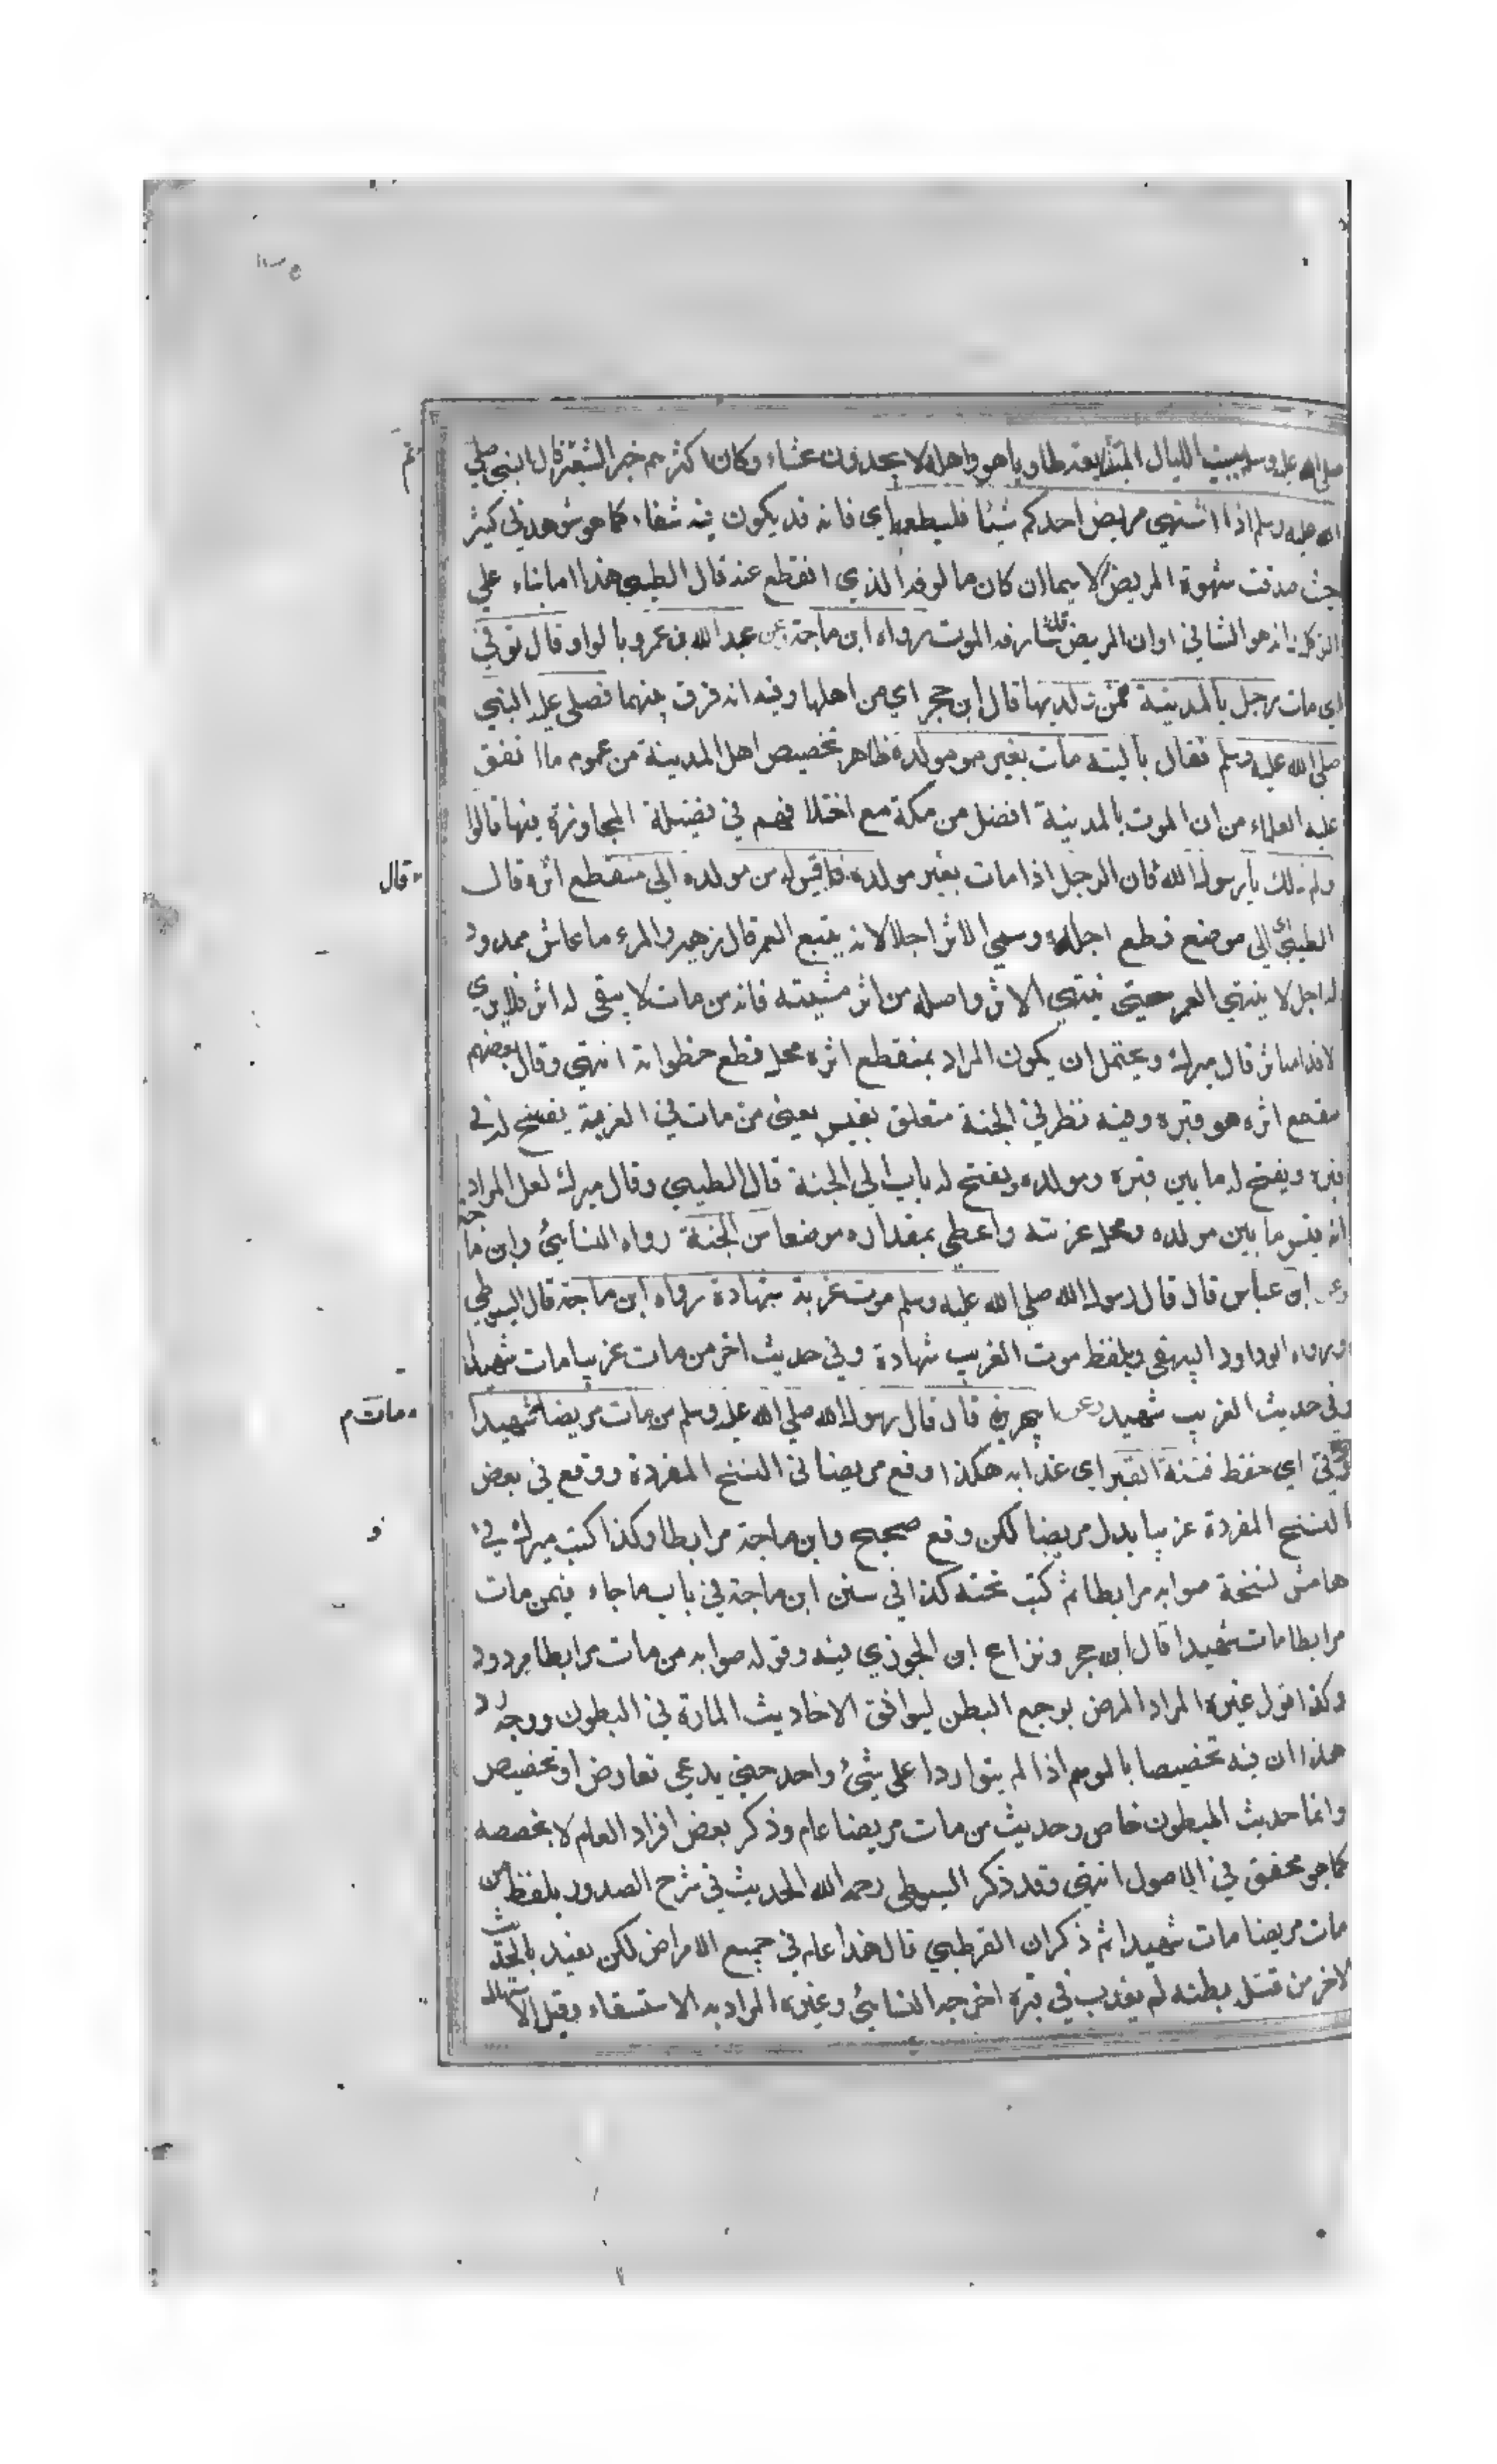 صلى الله عليه وسلم يبيت الليالي المتتابعة طاويا هو واهله لا يجدون عشاء وكان اكثرهم خبز الشعير قال النبي صلى
الله عليه وسلم اذا اشتهي مريض احدكم شيئا فليطعمه اي فانه قد يكون فيه شفاء كما هو شوهد في كثير
حيث صدقت شهوة المريض لا سيما ان كان مالوفه الذي انقطع عنه قال الطيبي هذا اما بناء علي
التوكل انه هو الشافي او ان المريض قد شارف الموت رواه ابن ماجة عن عبد الله بن عمرو بالواو قال توفي
اي مات رجل بالمدينة ممن ولد بها قال ابن حجر اي من اهلها وفيه انه فرق بينهما فصلى عليه النبي
صلي الله عليه وسلم فقال يا ليته مات بغير مولده ظاهر تخصيص اهل المدينة من عموم ما اتفق
عليه العلماء من ان الموت بالمدينة افضل من مكة مع اختلافهم في فضيلة المجاورة فيها قالوا
ولم ذلك يا رسول الله قال ان الرجل اذا مات بغير مولده قيس له من مولده الي منقطع اثره قال
الطيبي الي موضع قطع اجله وسمي الاثر اجلا لانه يتبع العمر قال زهير والمرء ما عاش ممدود
له اجل لا ينتهي العمر حيتي ينتهي الاثر واصله من اثر مشيته فانه من مات لا يبقى له اثر فلا يرى
لاقدامه اثر قال ميرك ويحتمل ان يكون المراد بمنقطع اثره محل قطع خطواته انتهي وقال بعضهم
منقطع اثره هو قبره وفيه نظر في الجنة متعلق بقيس يعني من مات في الغربة يفسح له في
قبره ويفتح له ما بين قبره ومولده ويفتح له باب الي الجنة قال الطيبي وقال ميرك لعل المراد
انه يقس ما بين مولده ومحل غربته واعطي بمقداره موضعا من الجنة رواه النسائي وابن ماجه
وعن ابن عباس قال قال رسول الله صلي الله عليه وسلم موت غربة شهادة رواه ابن ماجة قال السيوطي
ورواه ابوداود البيهقي وبلفظ موت الغريب شهادة وفي حديث اخر من مات غريبا مات شهيدا
وفي حديث الغريب شهيد وعن ابي هريرة قال قال رسول الله صلي الله عليه وسلم من مات مريضا شهيدا
ووقي اي حفظ فتنة القبر اي عذابه هكذا وقع مريضا في النسخ المفردة ووقع في بعض
النسخ المفردة غريبا بدل مريضا لكن وقع صحيح وابن ماجة مرابطا وكذا كتب ميرك في
هامش نسخة صوابه مرابطا ثم كتب تحته كذا في سنن ابن ماجة في باب ما جاء فيمن مات
مرابطا مات شهيدا قال ابن حجر ونزاع ابن الجوزي فيه وقوله صوابه من مات مرابطا مردود
وكذا قول غيره المراد المرض بوجع البطن ليوافق الاحاديث المارة في البطون ووجه رد
هذا ان فيه تخصيصا بالوهم اذا لم يتواردا على شيء واحد حتي يدعي تعارض او تخصيص
وانما حديث المبطون خاص وحديث من مات مريضا عام وذكر بعض افراد العام لا يخصصه
كما هو محقق في الاصول انتهي وقد ذكر السيوطي رحمه الله الحديث في شرح الصدور بلفظ من
مات مريضا مات شهيدا ثم ذكر ان القرطبي قال هذا عام في جميع الامراض لكن يقيد بالحديث
الاخر من قتله بطنه لم يعذب في قبره اخرجه النسائي وغيره المراد به الاستسقاء وقيل الاسهال
قال
مات م
و